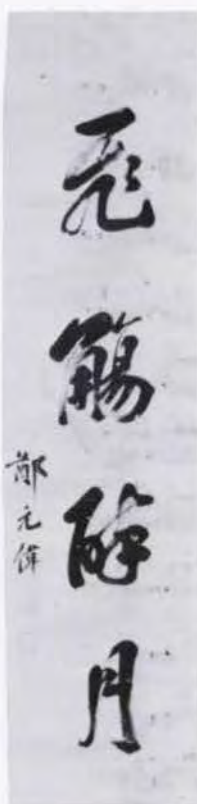 飛觴醉月
鄭元偉